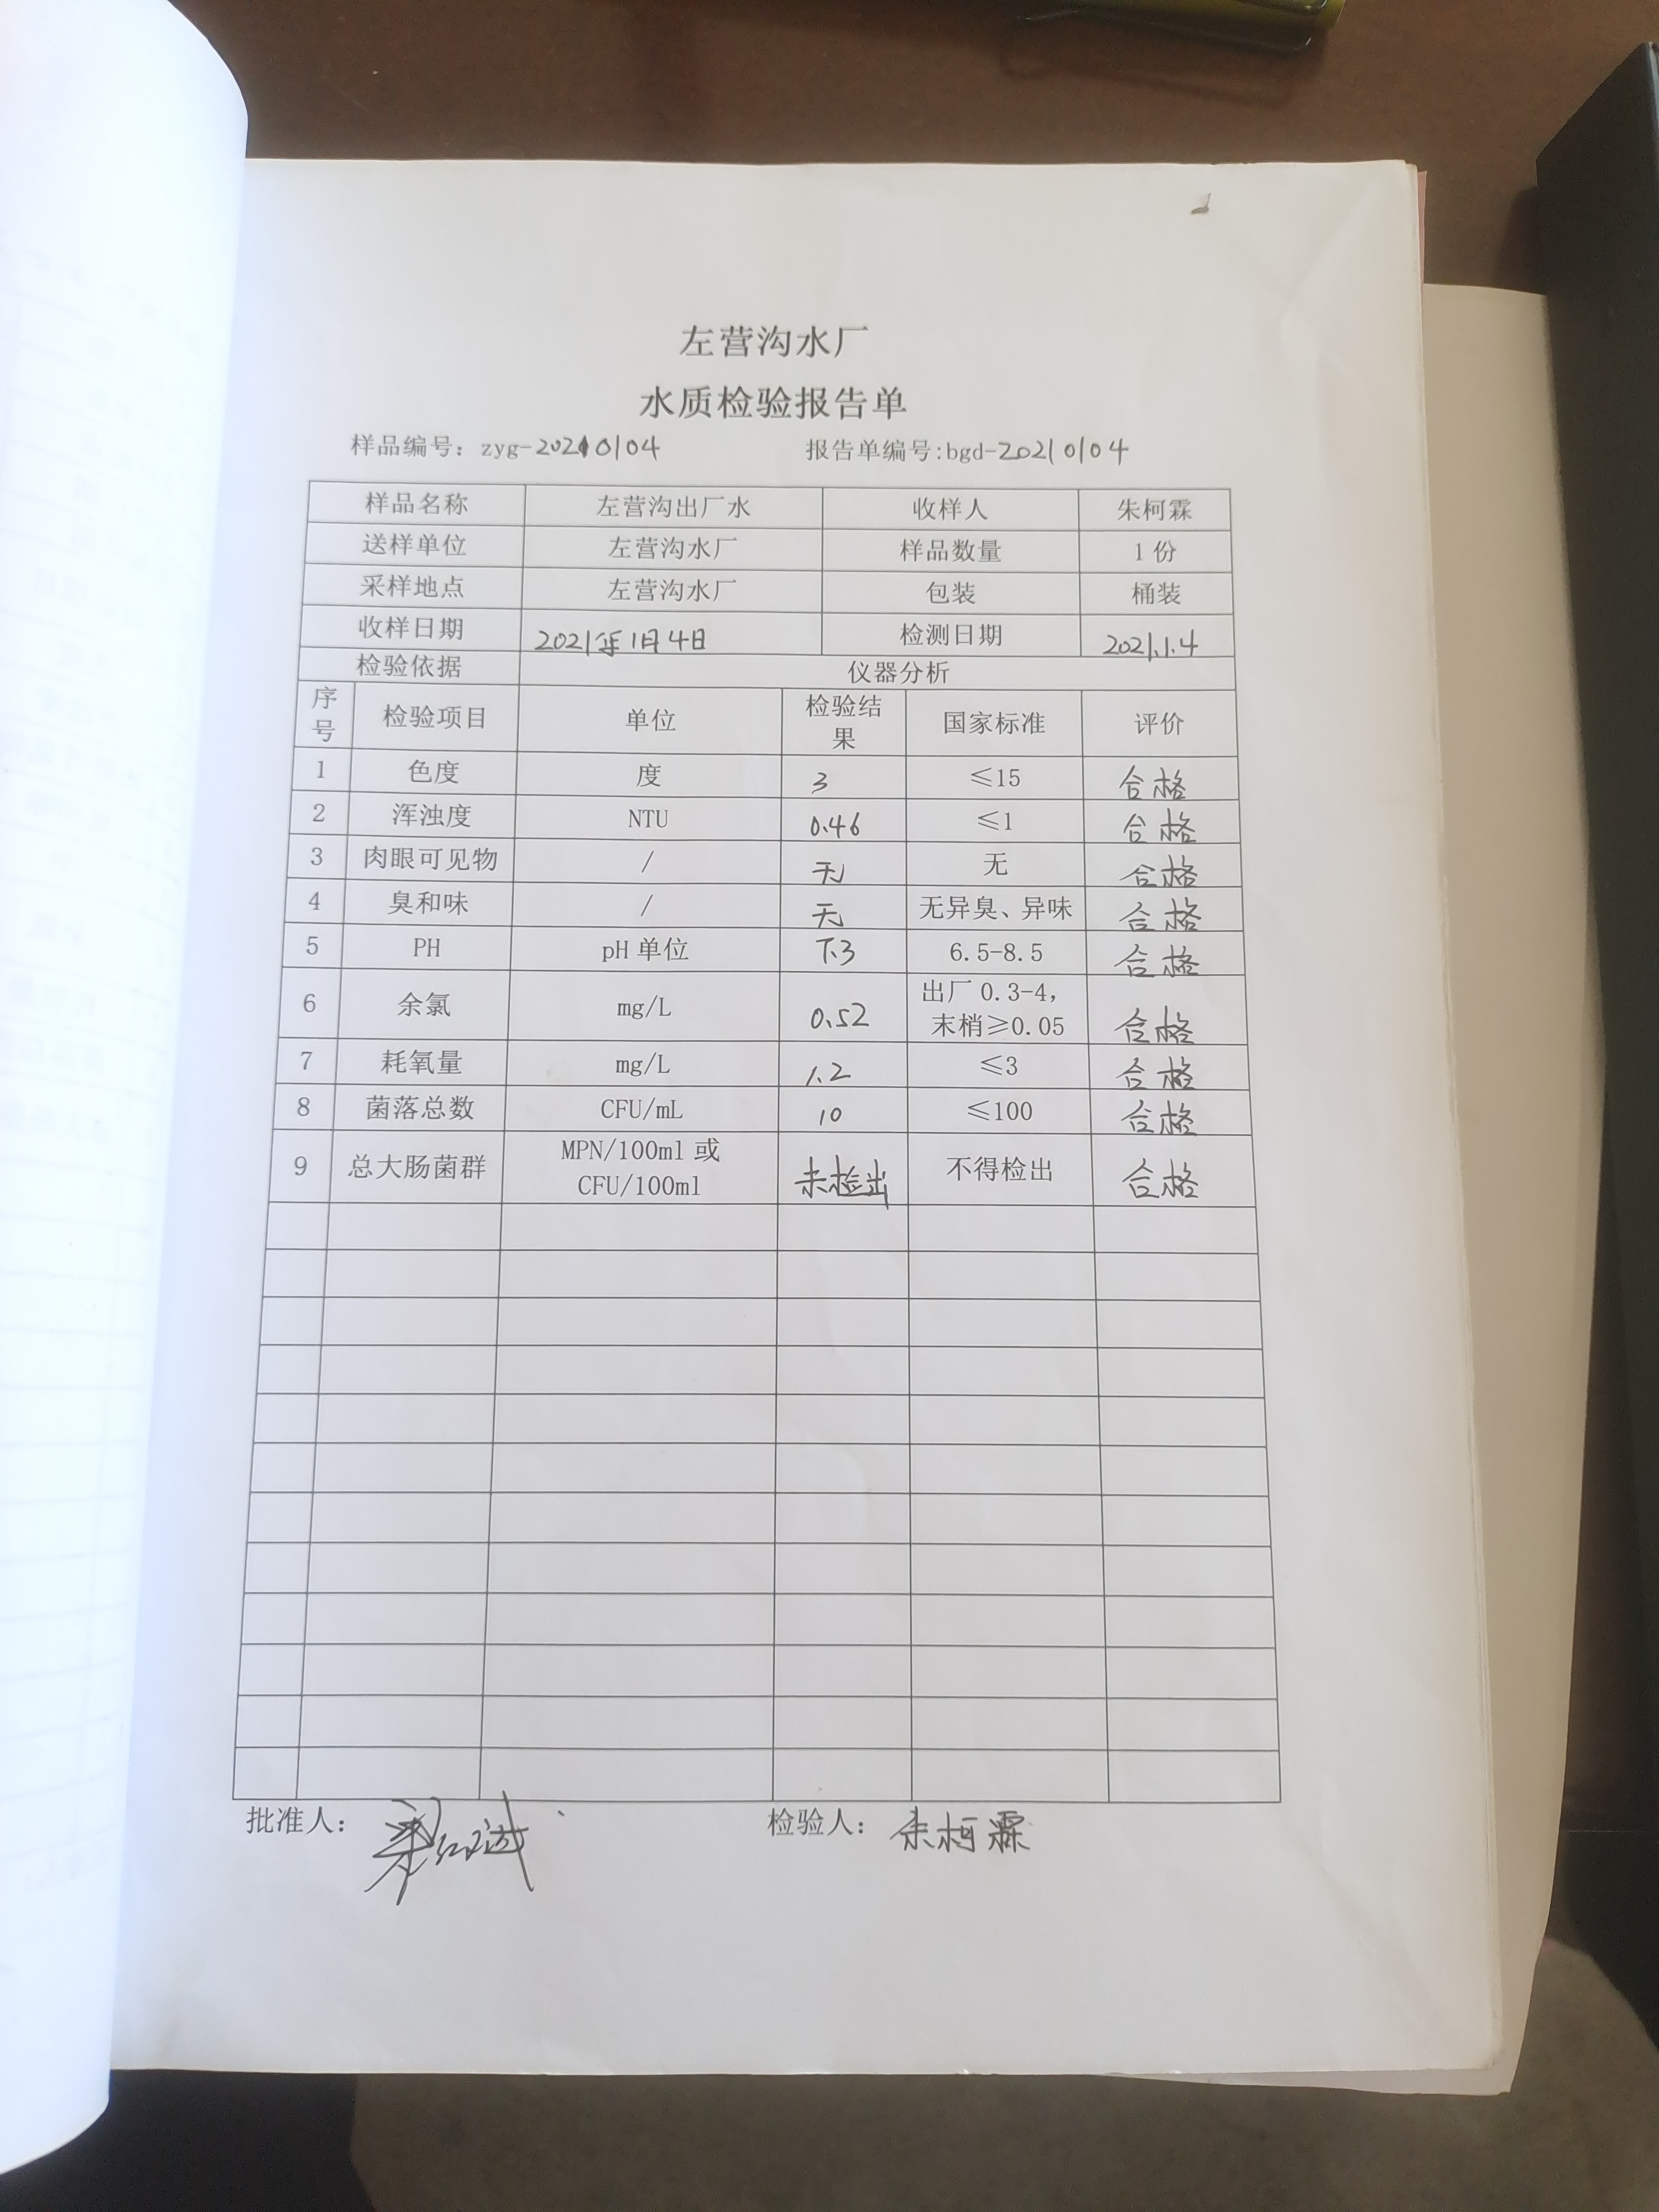 左营沟水厂
水质检验报告单
样品编号：zyg-20210104 报告单编号:bgd-20210104
样品名称 左营沟出厂水 收样人 朱柯霖
送样单位 左营沟水厂 样品数量 1份
采样地点 左营沟水厂 包装 桶装
收样日期 2021年1月4日 检测日期 2021.1.4
检验依据 仪器分析
序号 检验项目 单位 检验结果 国家标准 评价
1 色度 度 3 ≤15 合格
2 浑浊度 NTU 0.46 ≤1 合格
3 肉眼可见物 / 无 无 合格
4 臭和味 / 无 无异臭、异味 合格
5 PH pH单位 7.3 6.5-8.5 合格
6 余氯 mg/L 0.52 出厂0.3-4，末梢≥0.05 合格
7 耗氧量 mg/L 1.2 ≤3 合格
8 菌落总数 CFU/mL 10 ≤100 合格
9 总大肠菌群 MPN/100ml或CFU/100ml 未检出 不得检出 合格
批准人： 检验人：朱柯霖